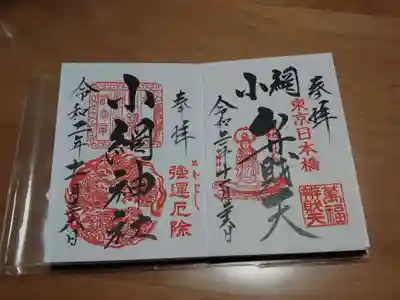 奉拝
強運厄除
小網神社
令和二年十一月廿八日
奉拝
東京日本橋
萬福
辨財天
小網弁財天
令和二年十一月廿八日